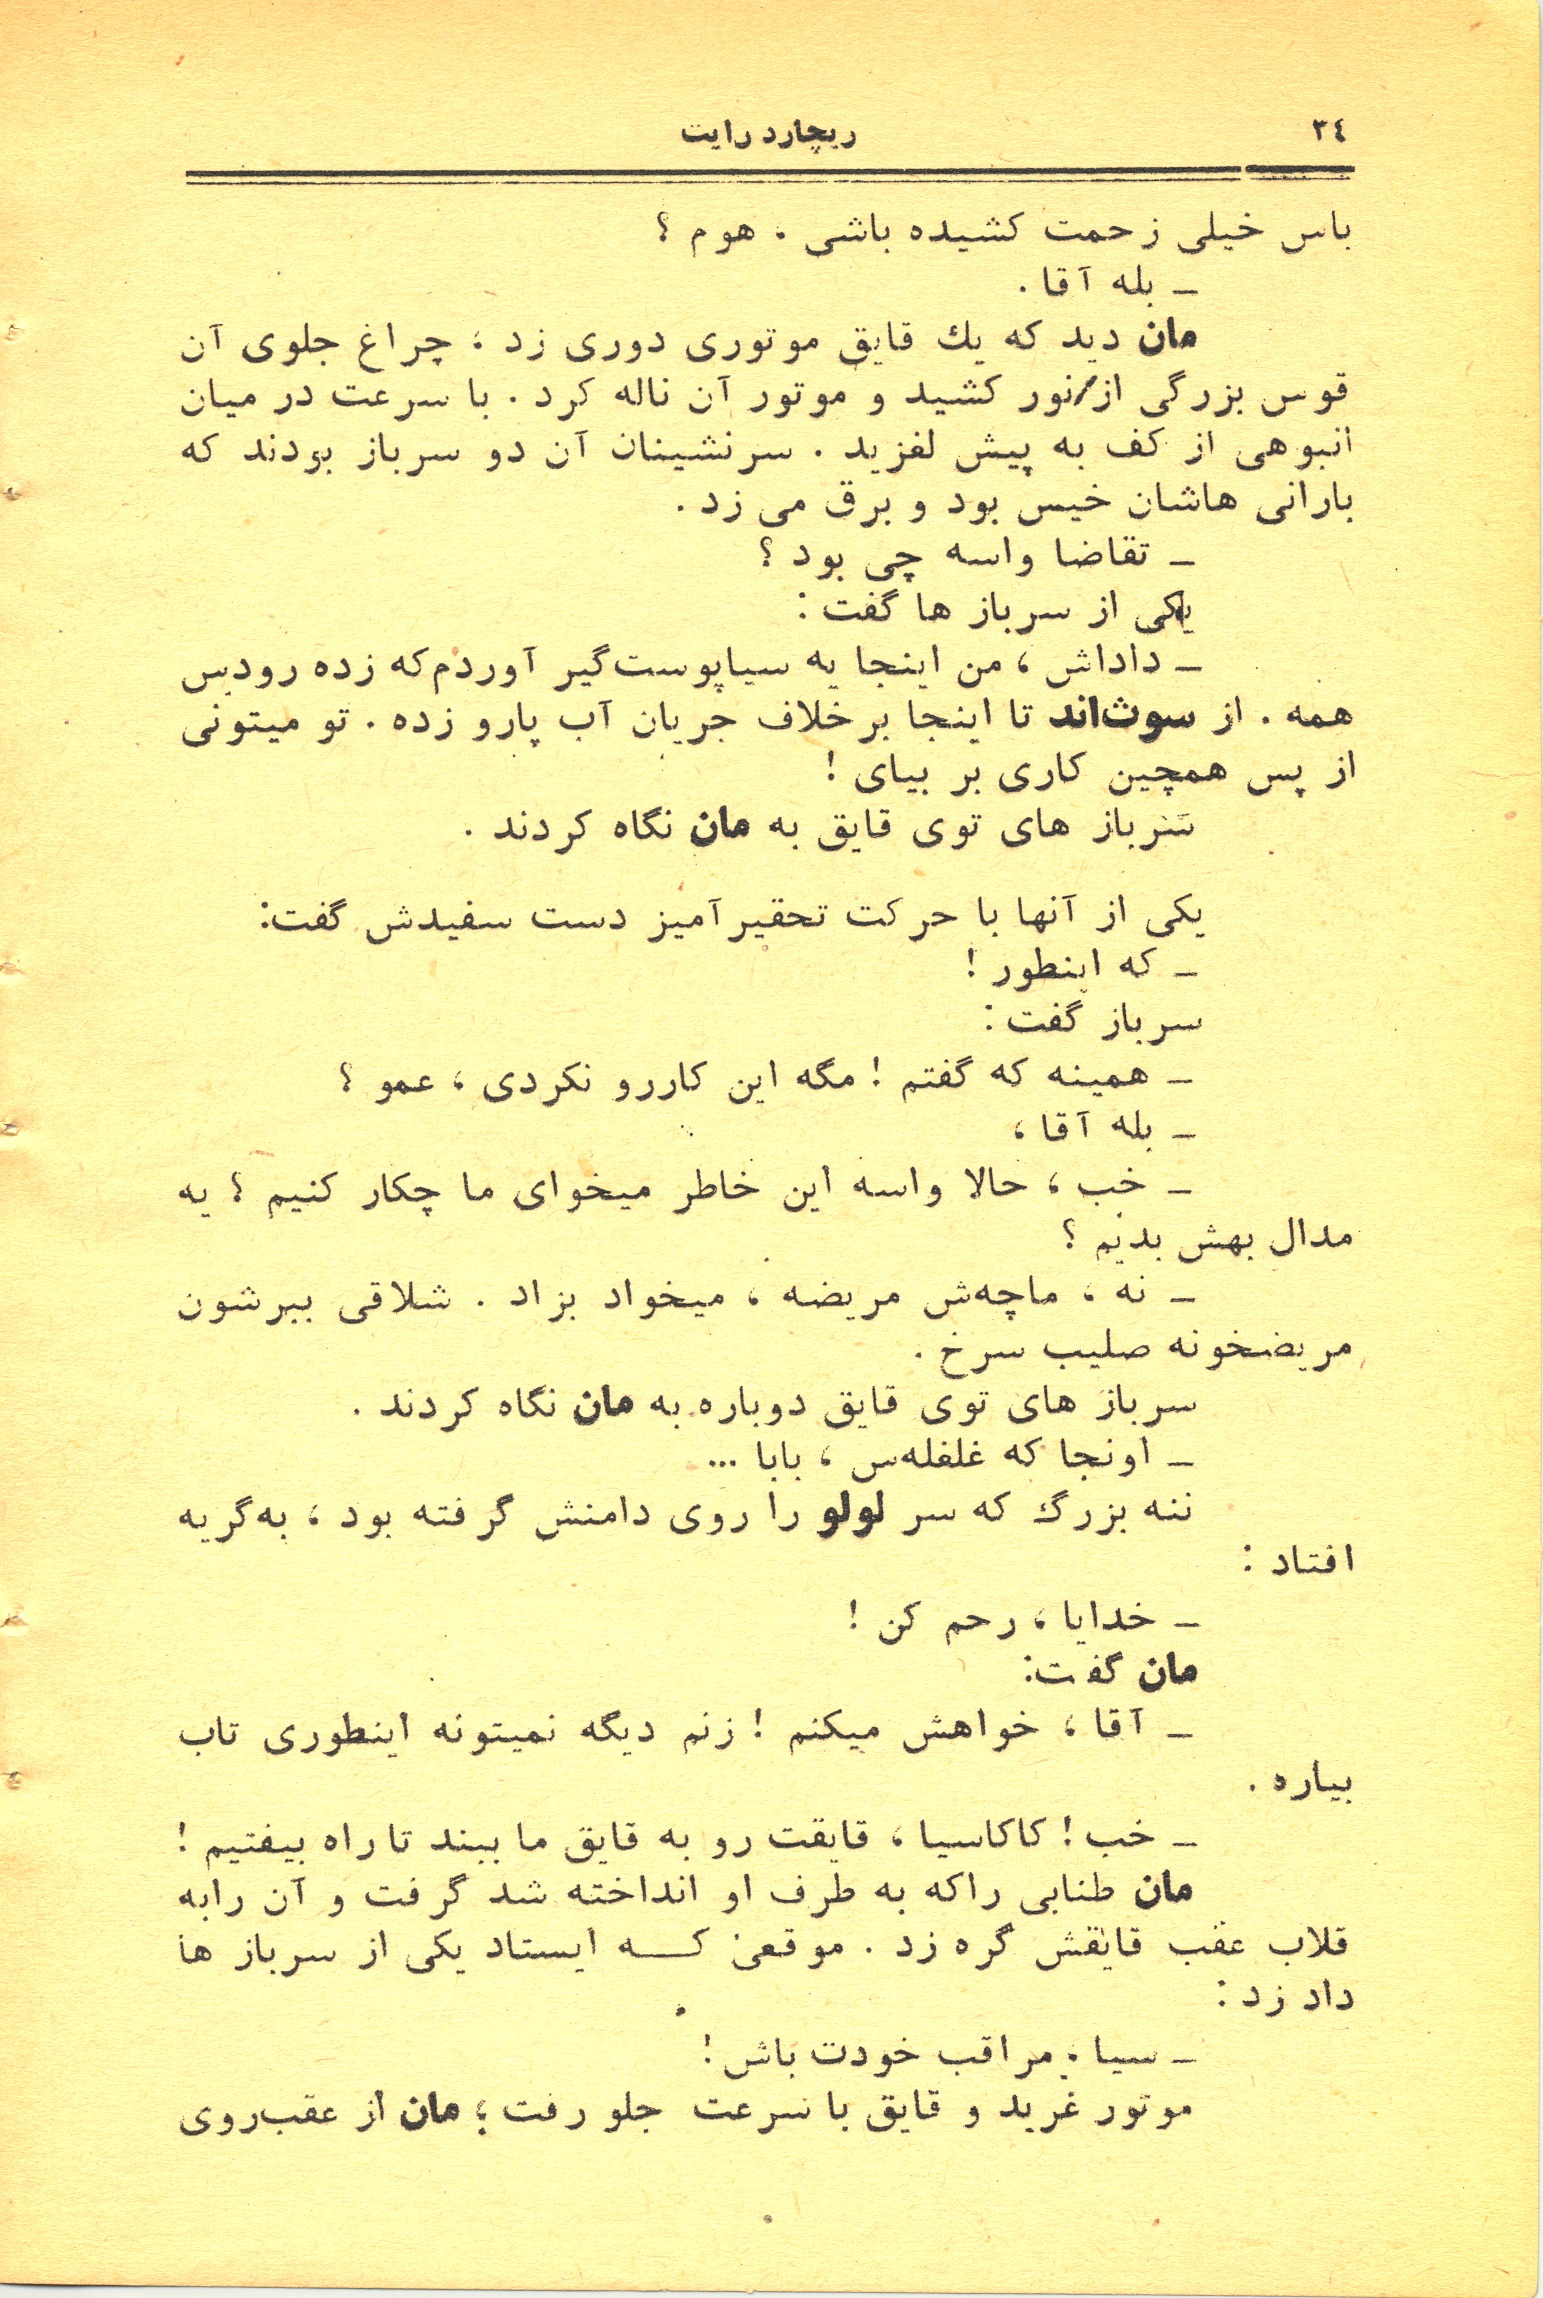 ٣٤
ریچارد رایت
باس خیلی زحمت کشیده باشی . هوم ؟
ـ بله آقا .
مان دید که یك قایق موتوری دوری زد ؛ چراغ جلوی آن
قوس بزرگی از نور کشید و موتور آن ناله کرد . با سرعت در میان
انبوهی از کف به پیش لغزید . سرنشینان آن دو سرباز بودند که
بارانی هاشان خیس بود و برق می زد .
ـ تقاضا واسه چی بود ؟
یکی از سرباز ها گفت :
ـ داداش ، من اینجا یه سیاپوست‌گیر آوردم‌که زده رودس
همه . از سوث‌اند تا اینجا برخلاف جریان آب پارو زده . تو میتونی
از پس همچین کاری بر بیای !
سرباز های توی قایق به مان نگاه کردند .
یکی از آنها با حرکت تحقیرآمیز دست سفیدش گفت:
ـ که اینطور !
سرباز گفت :
ـ همینه که گفتم ! مگه این کاررو نکردی ، عمو ؟
ـ بله آقا ،
ـ خب ، حالا واسه این خاطر میخوای ما چکار کنیم ؟ یه
مدال بهش بدیم ؟
ـ نه ، ماچه‌ش مریضه ، میخواد بزاد . شلاقی ببرشون
مریضخونه صلیب سرخ .
سرباز های توی قایق دوباره به مان نگاه کردند .
ـ اونجا که غلغله‌س ، بابا ...
ننه بزرگ که سر لولو را روی دامنش گرفته بود ، به‌گریه
افتاد :
ـ خدایا ، رحم کن !
مان گفت:
ـ آقا ، خواهش میکنم ! زنم دیگه نمیتونه اینطوری تاب
بیاره .
ـ خب ! کاکاسیا ، قایقت رو به قایق ما ببند تا راه بیفتیم !
مان طنابی راکه به طرف او انداخته شد گرفت و آن رابه
قلاب عقب قایقش گره زد . موقعی کـــه ایستاد یکی از سرباز ها
داد زد :
ـ سیا . مراقب خودت باش !
موتور غرید و قایق با سرعت جلو رفت ؛ مان از عقب‌روی